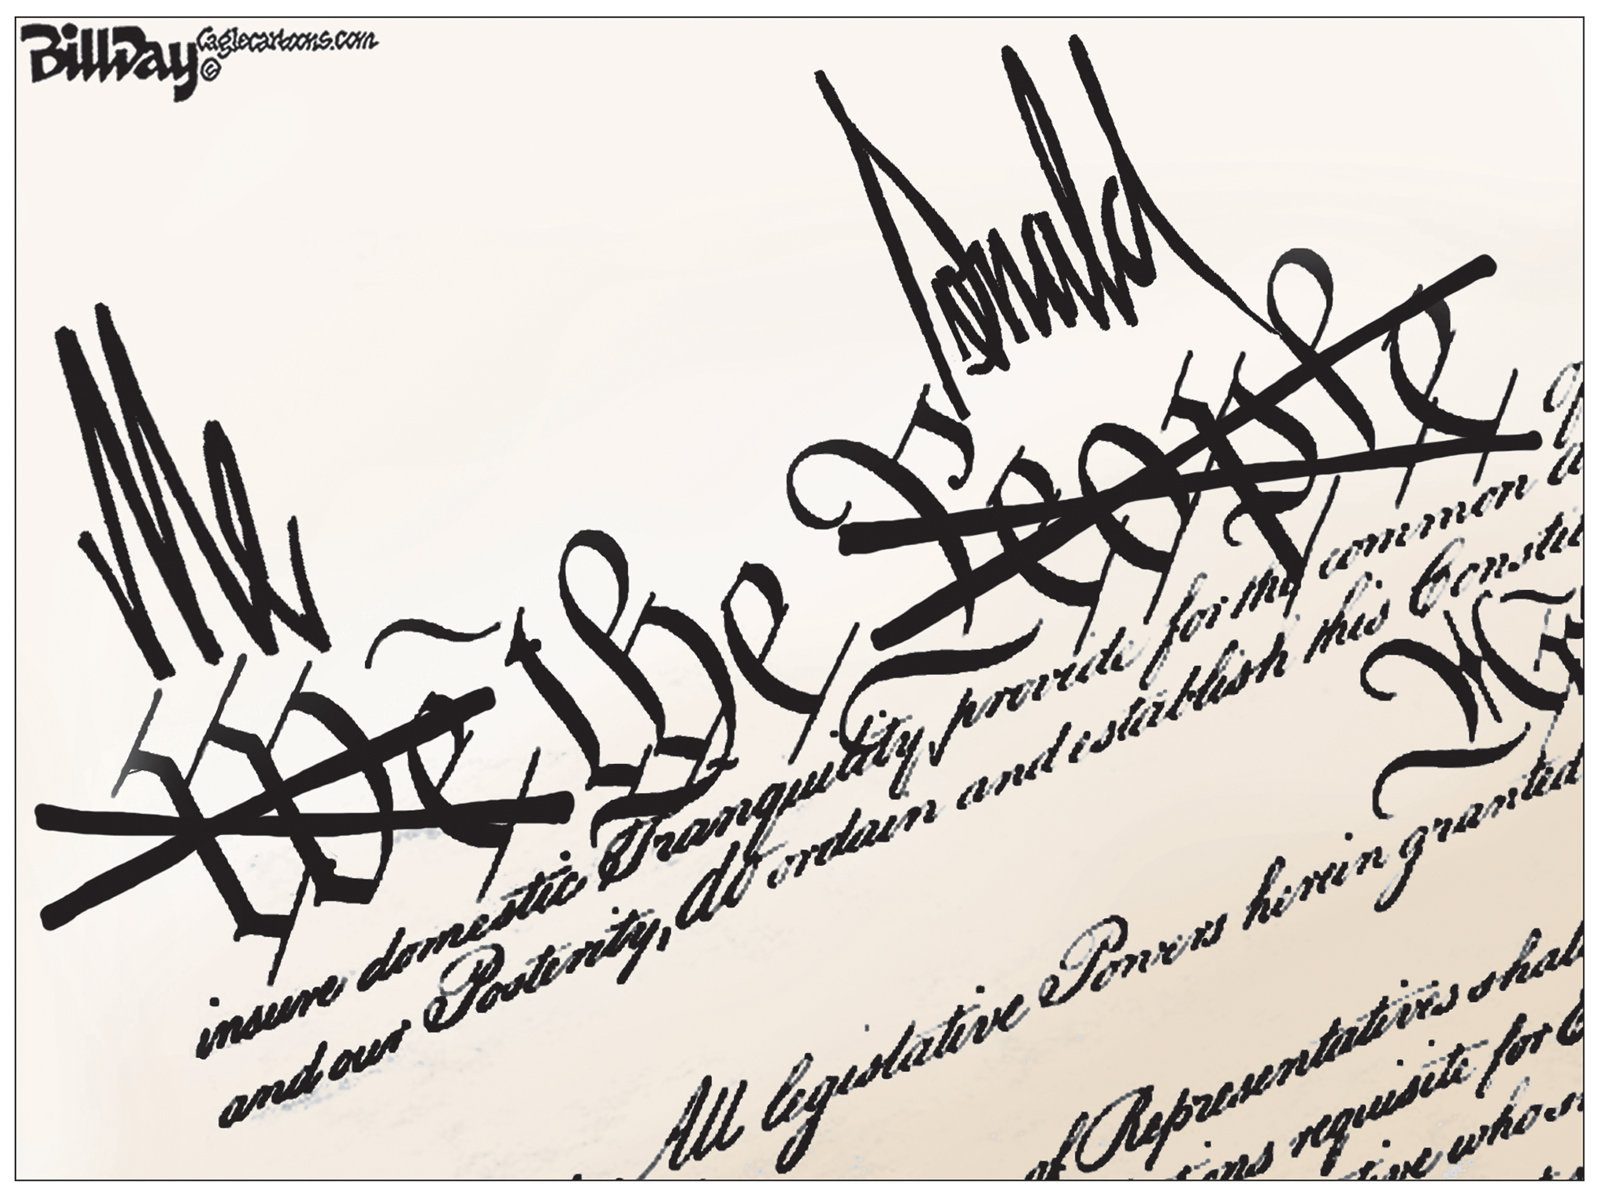 BillDay Caglecartoons.com
©
Me Donald
We the People
insure domestic Tranquility, provide for the common
and our Posterity, do ordain and establish this Constit
All legislative Powers herein granted
of Representatives shall
requisite for
who